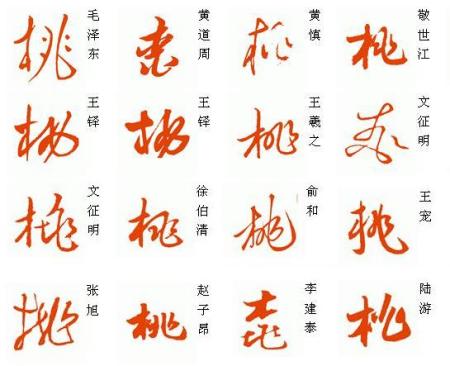 桃 毛泽东
桃 黄道周
桃 黄慎
桃 敬世江
桃 王铎
桃 王铎
桃 王羲之
桃 文征明
桃 文征明
桃 徐伯清
桃 俞和
桃 王宠
桃 张旭
桃 赵子昂
桃 李建泰
桃 陆游